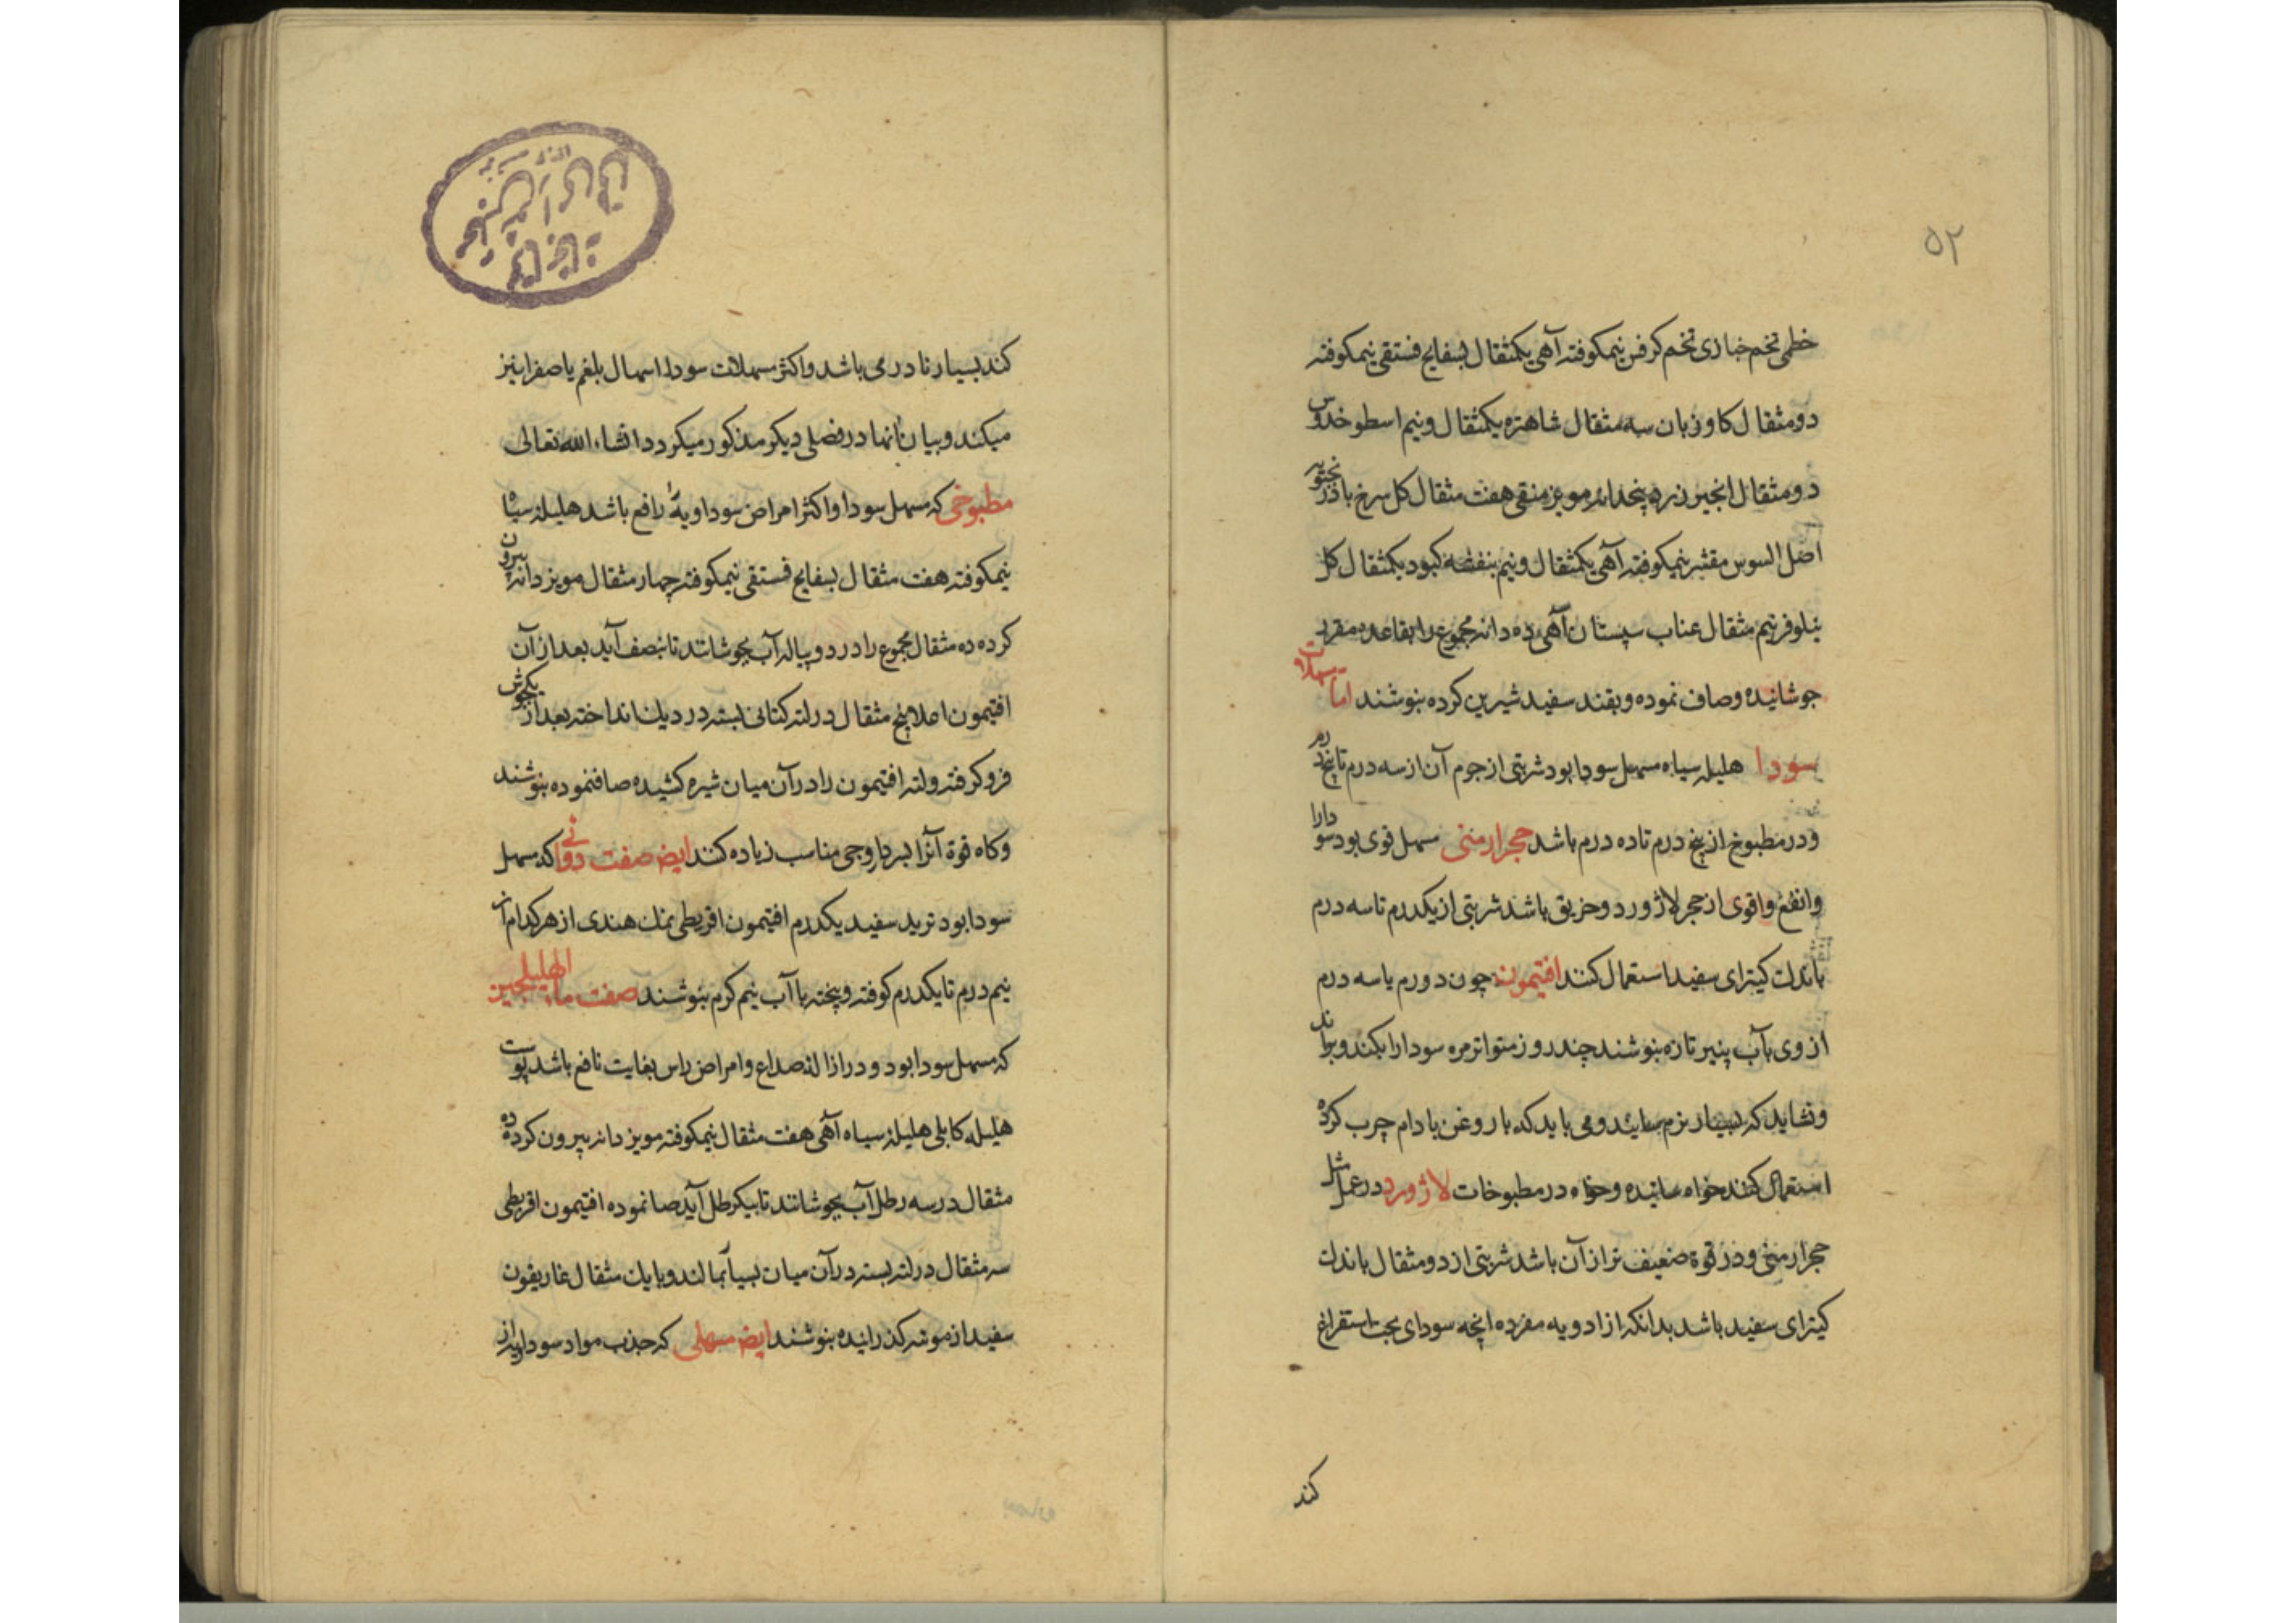 ۵۲
خطمی تخم خبازی تخم کرفس نیمکوفته آهی یکمثقال بسفایج فستقی نیمکوفته
دو مثقال کاوزبان سه مثقال شاهتره یکمثقال ونیم اسطوخدوس
دو مثقال انجیر زرد پنجدانه مویز منقی هفت مثقال کل سرخ بادرنجبویه
اصل السوس مقشر نیمکوفته آهی یکمثقال ونیم بنفشه کبود یکمثقال کل
نیلوفر نیم مثقال عناب سپستان آهی ده دانه مجموع را بقاعده مقرر
جوشانیده وصاف نموده وبقند سفید شیرین کرده بنوشند اما مسهلات
سودا هلیله سیاه مسهل سودا بود شربتی از جرم آن از سه درم تا پنج درم
ودر مطبوخ از پنج درم تا ده درم باشد حجر ارمنی مسهل قوی بود سودا را
وانفع واقوی از حجر لاژورد وخربق باشد شربتی از یکدرم تا سه درم
باندک کیترای سفید استعمال کنند افتیمون چون دو درم یا سه درم
از وی بآب پنیر تازه بنوشند چند روز متواتر مره سودا را بکند وبراند
ونشاید که بسیار نرم سایند ومی باید که با روغن بادام چرب کرده
استعمال کنند خواه سانیده وخواه در مطبوخات لاژورد در عمل مثل
حجر ارمنی ودر قوة ضعیف تر از آن باشد شربتی از دو مثقال باندک
کیترای سفید باشد بدانکه از ادویه مفرده انچه سودای بحت استفراغ
کند
کند بسیار نادر می باشد واکثر مسهلات سودا اسهال بلغم یا صفرا نیز
میکند وبیان آنها در فصلی دیکر مذکور میکردد انشاء الله تعالی
مطبوخی که مسهل سودا واکثر امراض سوداویه را فع باشد هلیله سیاه
نیمکوفته هفت مثقال بسفایج فستقی نیمکوفته چهار مثقال مویز دانه بیرون
کرده ده مثقال مجموع را در دو پیاله آب بجوشانند تا بنصف آید بعد از آن
افتیمون اعلا پنج مثقال در لته کتانی بسته در دیک انداخته بعد از یکجوش
فرو کرفته ولته افتیمون را در آن میان شیره کشیده صاف نموده بنوشند
وکاه قوة آنرا بسردارویی مناسب زیاده کنند ایض صفت دوائی که مسهل
سودا بود تربد سفید یکدرم افتیمون اقریطی نمک هندی از هر کدام از
نیم درم تا یکدرم کوفته وپخته با آب نیم کرم بنوشند صفت ماء الهلیلجین
که مسهل سودا بود ودر ازاله صداع وامراض راس بغایت نافع باشد پوست
هلیله کابلی هلیله سیاه آهی هفت مثقال نیمکوفته مویز دانه بیرون کرده ده
مثقال در سه رطل آب بجوشانند تا بیکرطل آید صاف نموده افتیمون اقریطی
سه مثقال در لته بسته در آن میان بسیار بمالند وبا یک مثقال غاریقون
سفید از مویه کذرانیده بنوشند ایض مسهلی که جذب مواد سوداویه از